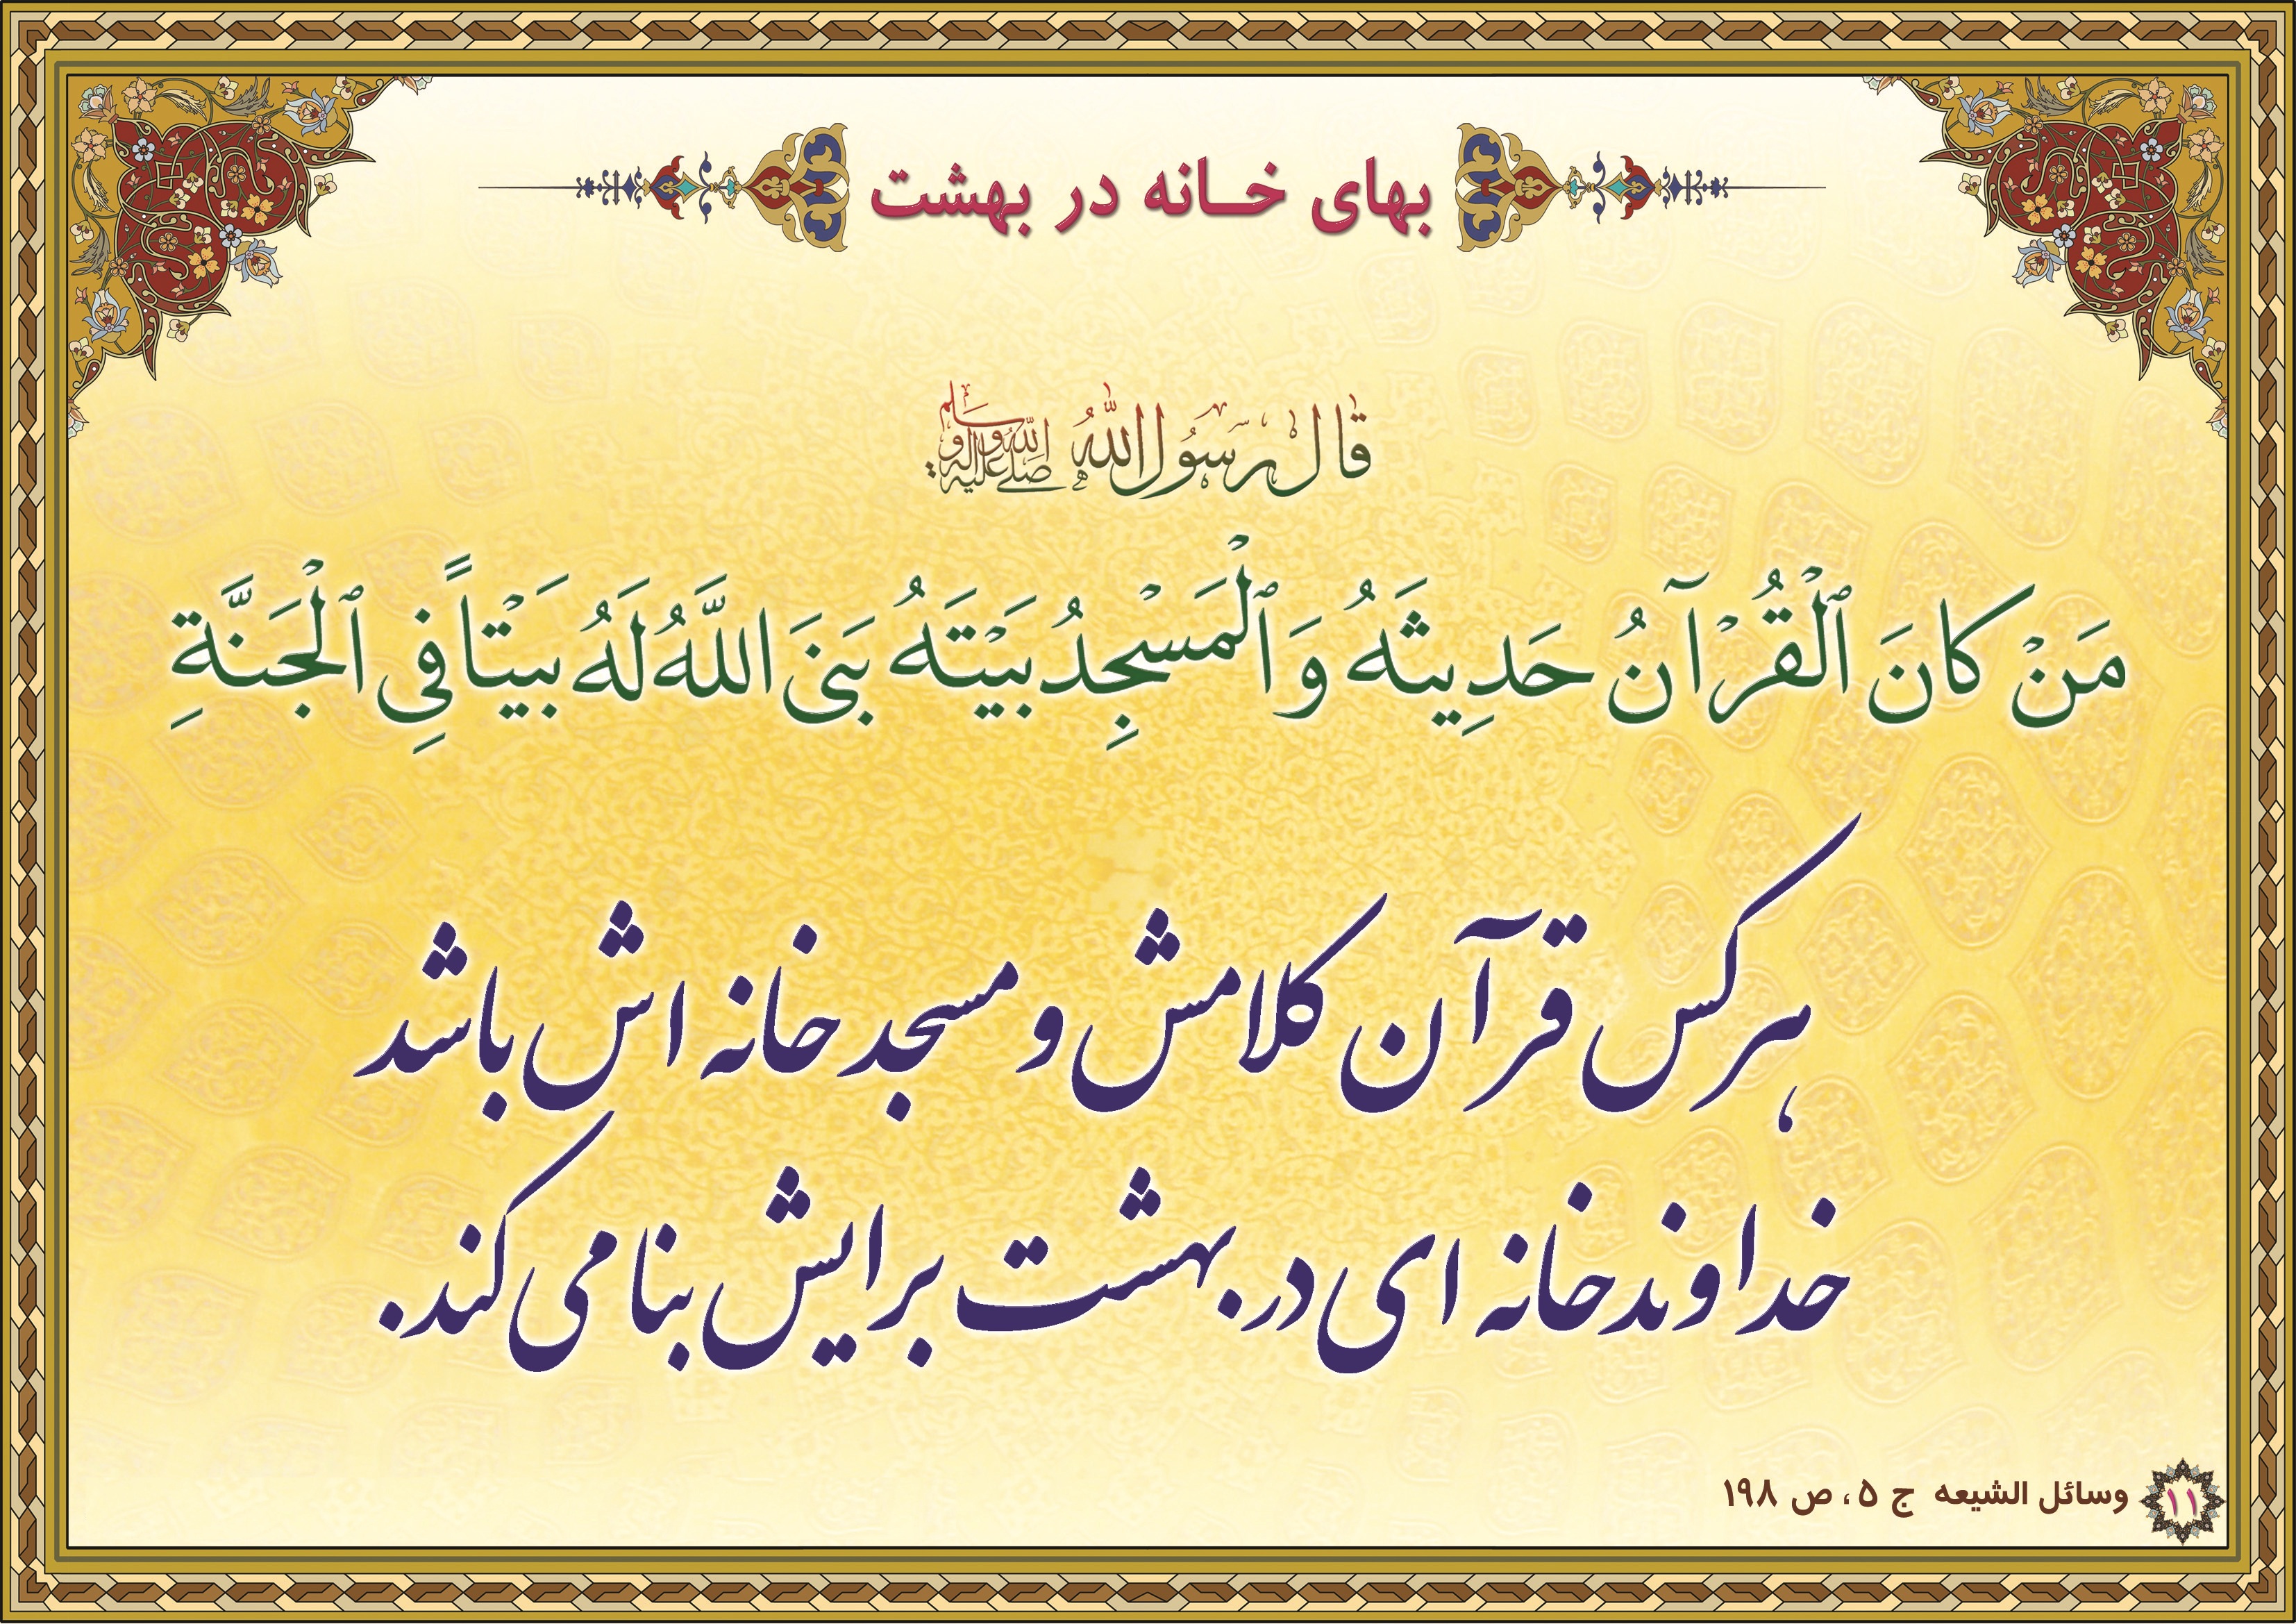 بهای خـانه در بهشت
قال رسول الله صلى الله عليه وآله وسلم
مَنْ كانَ ٱلْقُرْآنُ حَدِيثَهُ وَٱلْمَسْجِدُ بَيْتَهُ بَنَى اللَّهُ لَهُ بَيْتاً فِي ٱلْجَنَّةِ
هرکس قرآن کلامش و مسجد خانه اش باشد
خداوند خانه ای در بهشت برایش بنا می کند.
۱۱ وسائل الشیعه ج ۵، ص ۱۹۸